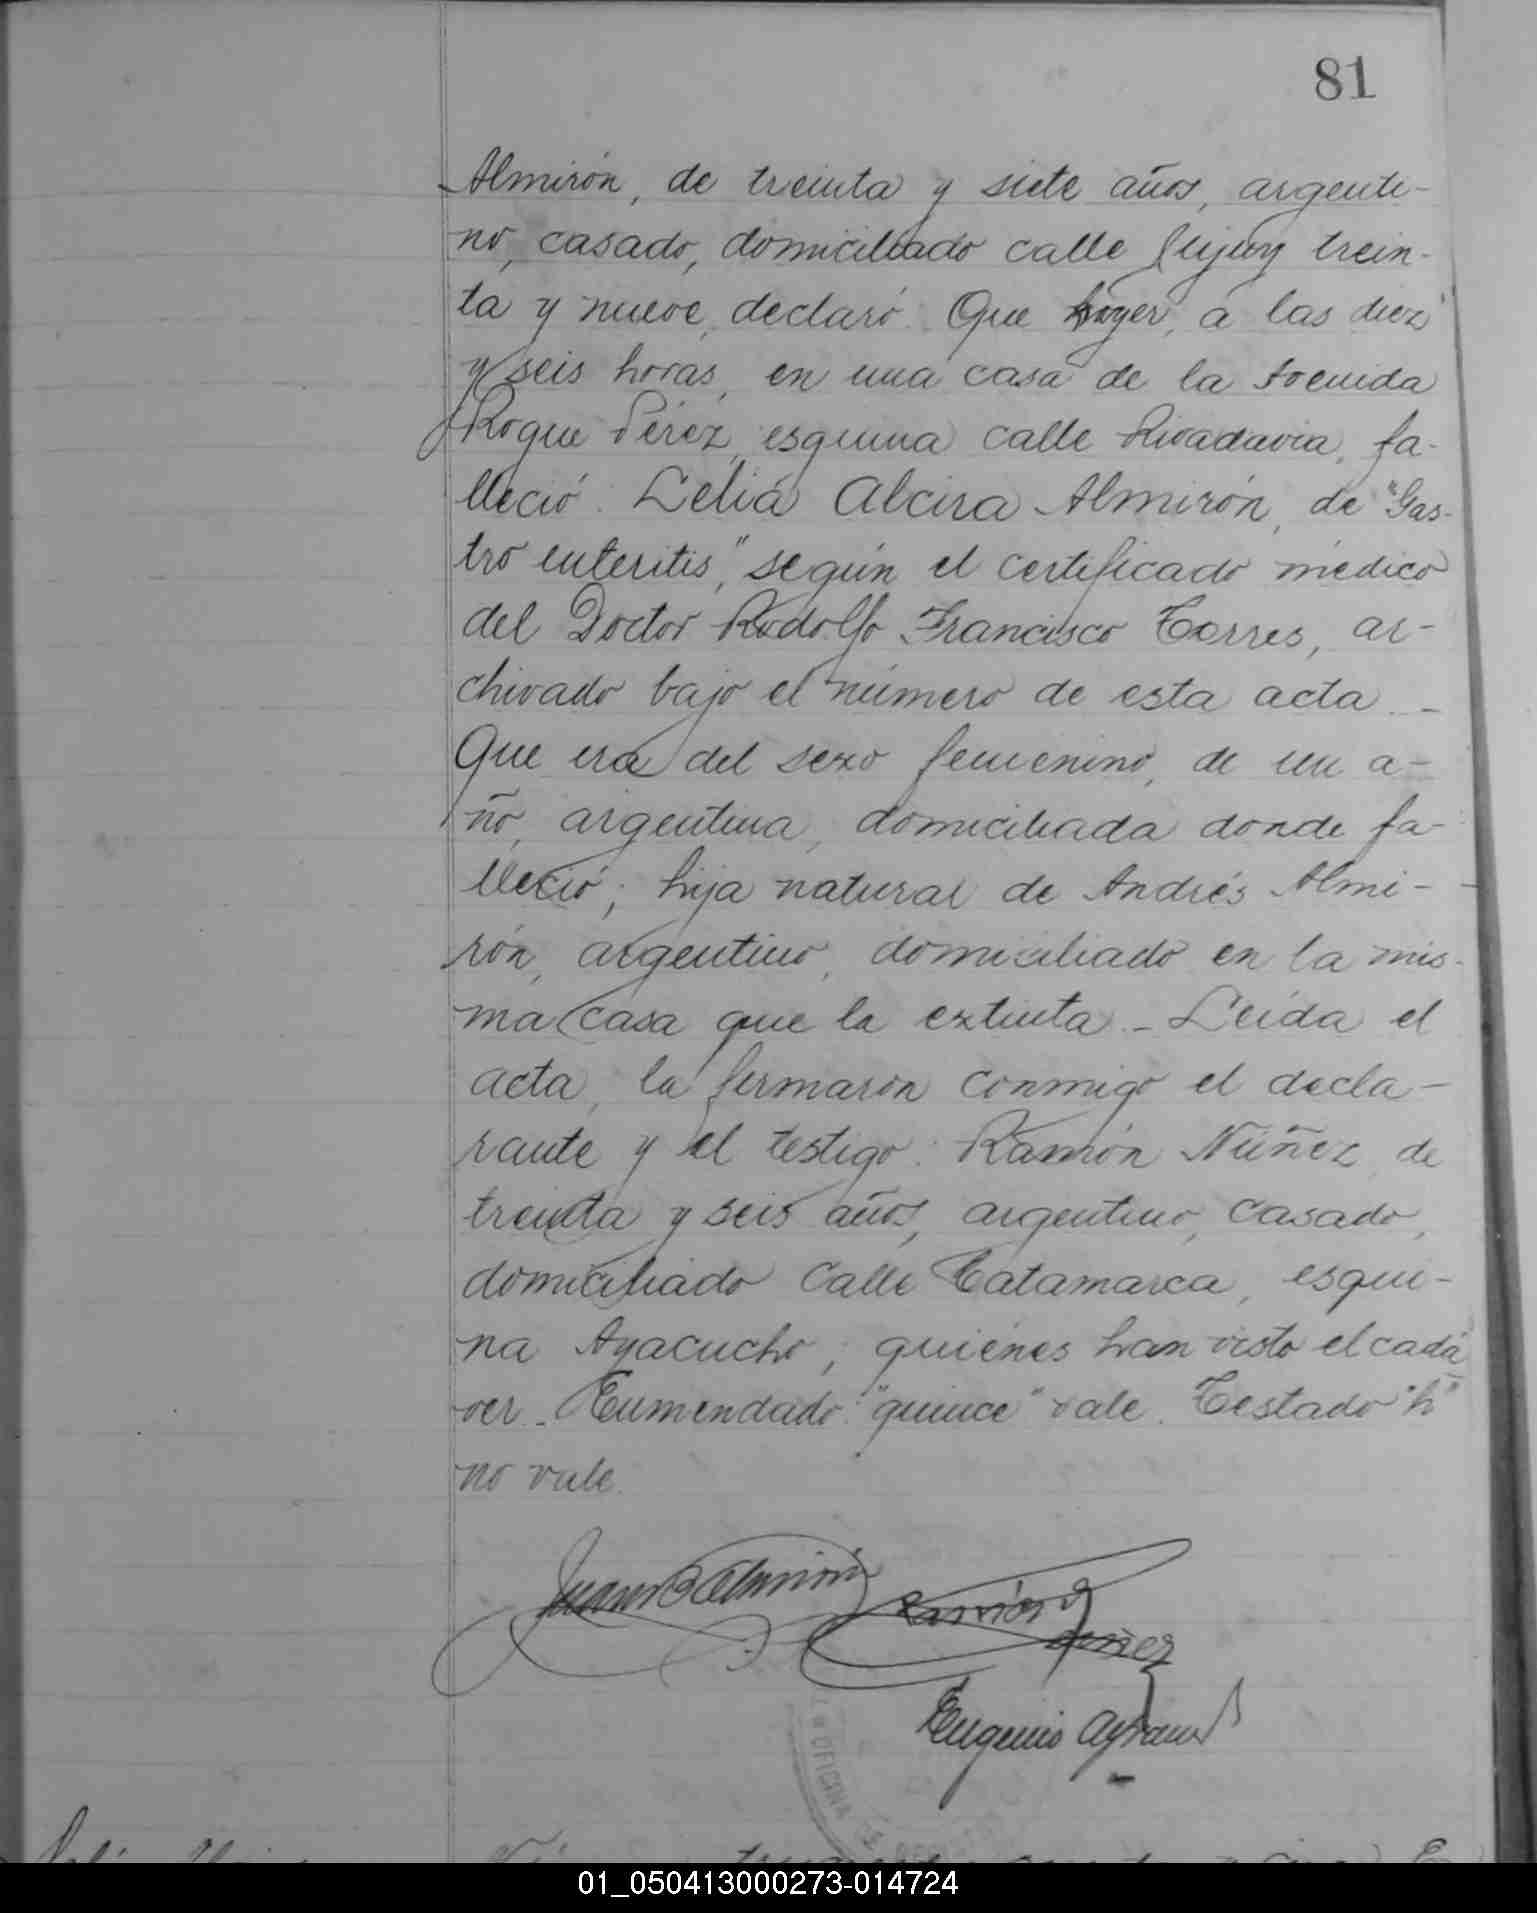 81
Almirón, de treinta y siete años, argenti-
no, casado, domiciliado calle Jujuy trein-
ta y nueve, declaró: Que hayer, a las diez
y seis horas, en una casa de la Avenida
Roque Pérez, esquina calle Rivadavia, fa-
lleció: Lelia Alcira Almirón, de "Gas-
tro enteritis," según el certificado médico
del Doctor Rodolfo Francisco Torres, ar-
chivado bajo el número de esta acta. -
Que era del sexo femenino, de un a-
ño, argentina, domiciliada donde fa-
lleció; hija natural de Andrés Almi-
rón, argentino, domiciliado en la mis-
ma casa que la extinta. - Leída el
acta, la firmaron conmigo el decla-
rante y el testigo: Ramón Núñez, de
treinta y seis años, argentino, casado,
domiciliado calle Catamarca, esqui-
na Ayacucho; quienes han visto el cadá
ver. - Enmendado: "quince" vale. Testado "h"
no vale.
Juan B Almirón
Ramón
Núñez
Eugenio
OFICINA
01_050413000273-014724